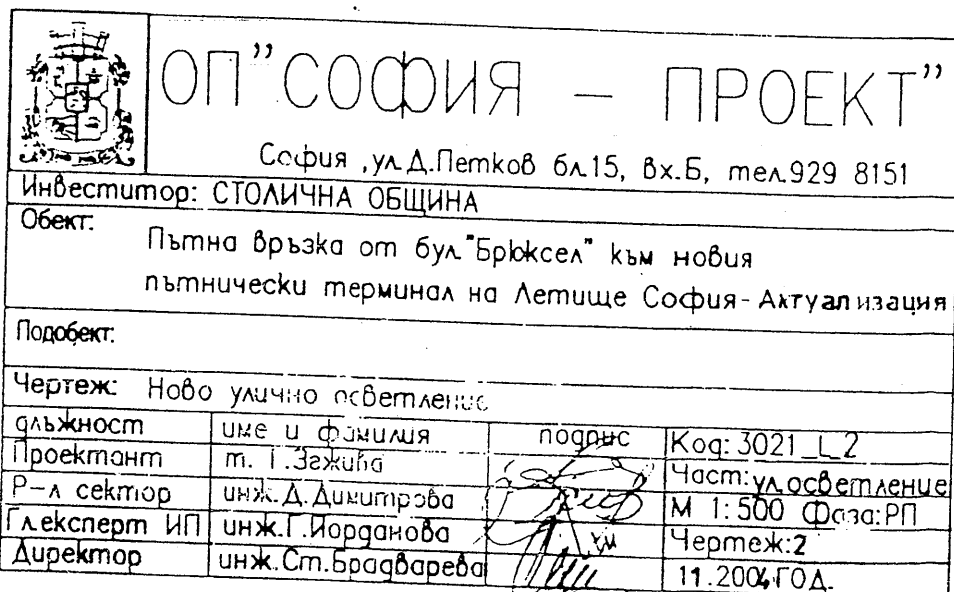 ОП"СОФИЯ – ПРОЕКТ"
София ,ул.Д.Петков бл.15, вх.Б, тел.929 8151
Инвеститор: СТОЛИЧНА ОБЩИНА
Обект:
Пътна връзка от бул."Брюксел" към новия
пътнически терминал на Летище София-Актуализация
Подобект:
Чертеж: Ново улично осветление
длъжност име и фамилия подпис Код: 3021_L_2
Проектант Част:ул.осветление
Р-л сектор инж.Д.Димитрова М 1:500 Фаза:РП
Гл.експерт ИП инж.Г.Йорданова Чертеж:2
Директор инж.Ст.Брадварева 11.2004.ГОД.